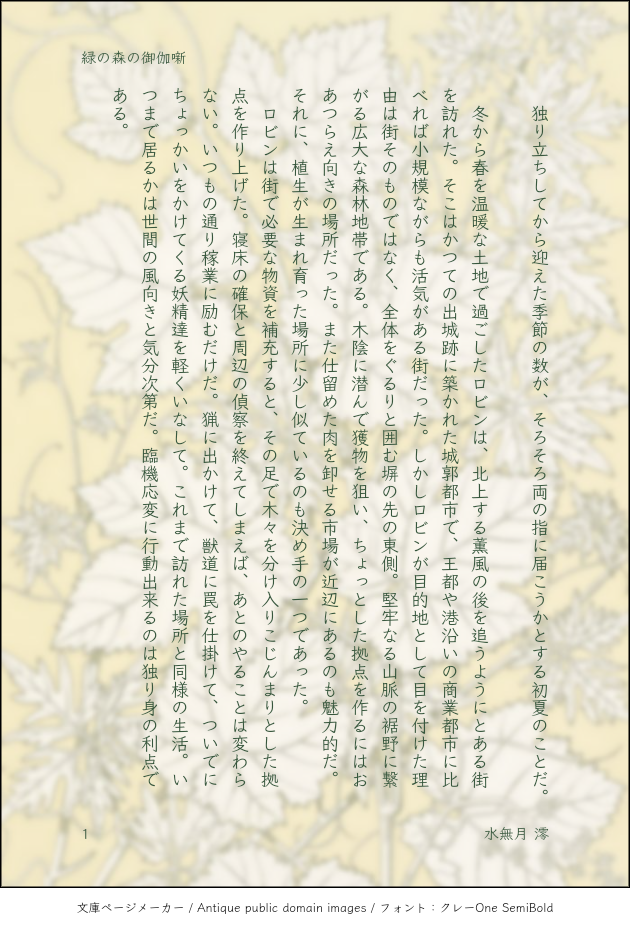 緑の森の御伽噺
独り立ちしてから迎えた季節の数が、そろそろ両の指に届こうかとする初夏のことだ。
冬から春を温暖な土地で過ごしたロビンは、北上する薫風の後を追うようにとある街
を訪れた。そこはかつての出城跡に築かれた城郭都市で、王都や港沿いの商業都市に比
べれば小規模ながらも活気がある街だった。しかしロビンが目的地として目を付けた理
由は街そのものではなく、全体をぐるりと囲む塀の先の東側。堅牢なる山脈の裾野に繋
がる広大な森林地帯である。木陰に潜んで獲物を狙い、ちょっとした拠点を作るにはお
あつらえ向きの場所だった。また仕留めた肉を卸せる市場が近辺にあるのも魅力的だ。
それに、植生が生まれ育った場所に少し似ているのも決め手の一つであった。
ロビンは街で必要な物資を補充すると、その足で木々を分け入りこじんまりとした拠
点を作り上げた。寝床の確保と周辺の偵察を終えてしまえば、あとのやることは変わら
ない。いつもの通り稼業に励むだけだ。猟に出かけて、獣道に罠を仕掛けて、ついでに
ちょっかいをかけてくる妖精達を軽くいなして。これまで訪れた場所と同様の生活。い
つまで居るかは世間の風向きと気分次第だ。臨機応変に行動出来るのは独り身の利点で
ある。
1
水無月 澪
文庫ページメーカー / Antique public domain images / フォント：クレーOne SemiBold